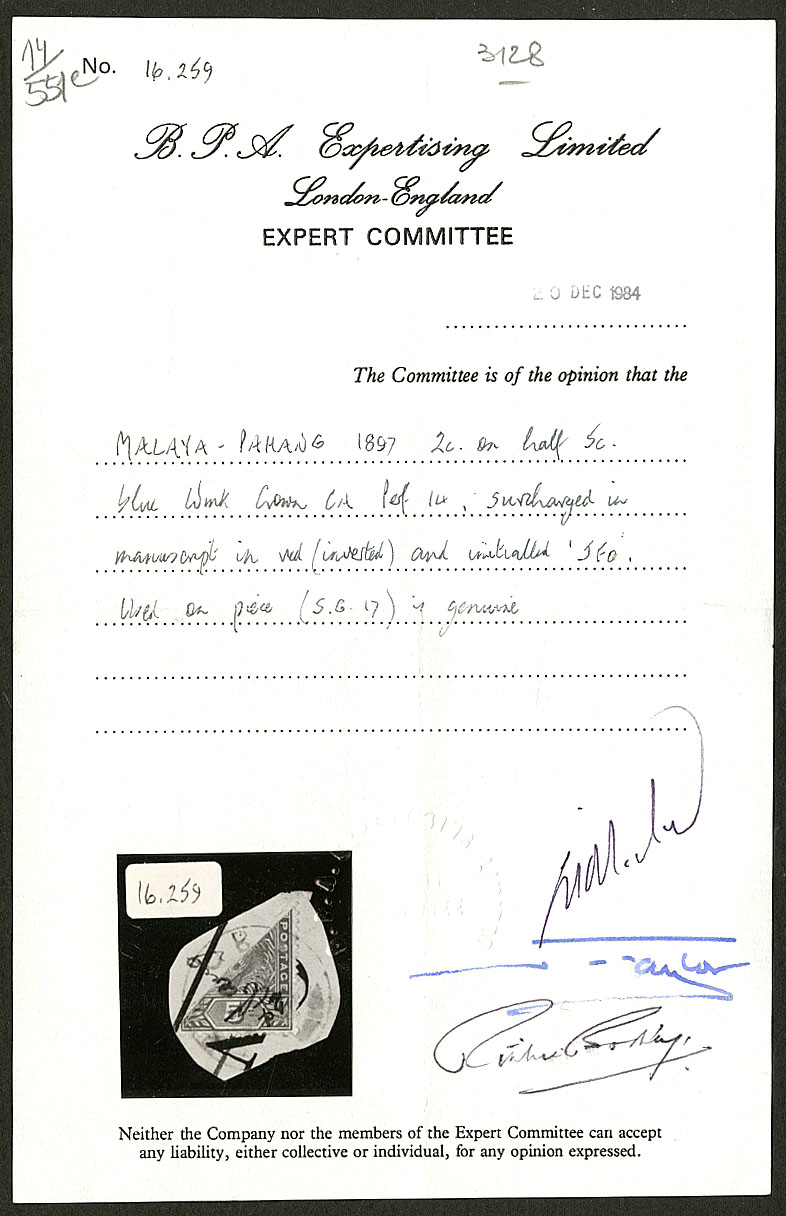 14/
55/e
No. 16.259
3128
B. P. A. Expertising Limited
London-England
EXPERT COMMITTEE
20 DEC 1984
The Committee is of the opinion that the
MALAYA - PAHANG 1897 2c. on half 5c.
blue Wmk Crown CA Perf 14, surcharged in
manuscript in red (inverted) and initialled 'JFO'.
Used on piece (S.G. 17) is genuine
16.259
POSTAGE
Neither the Company nor the members of the Expert Committee can accept
any liability, either collective or individual, for any opinion expressed.